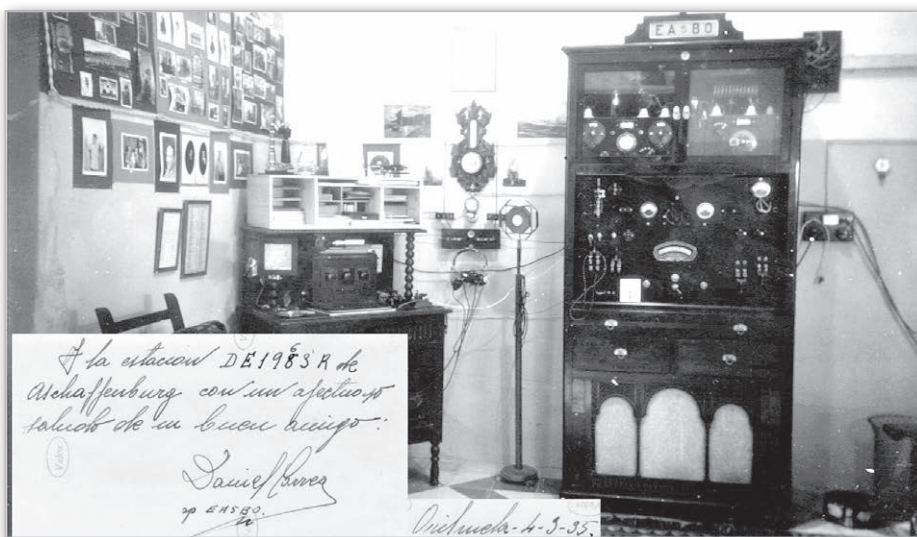 EA5BO
A la estacion DE1983R de
Aschaffenburg con un afectuoso
saludo de su buen amigo:
Daniel
op EA5BO.
Orihuela-4-3-35.